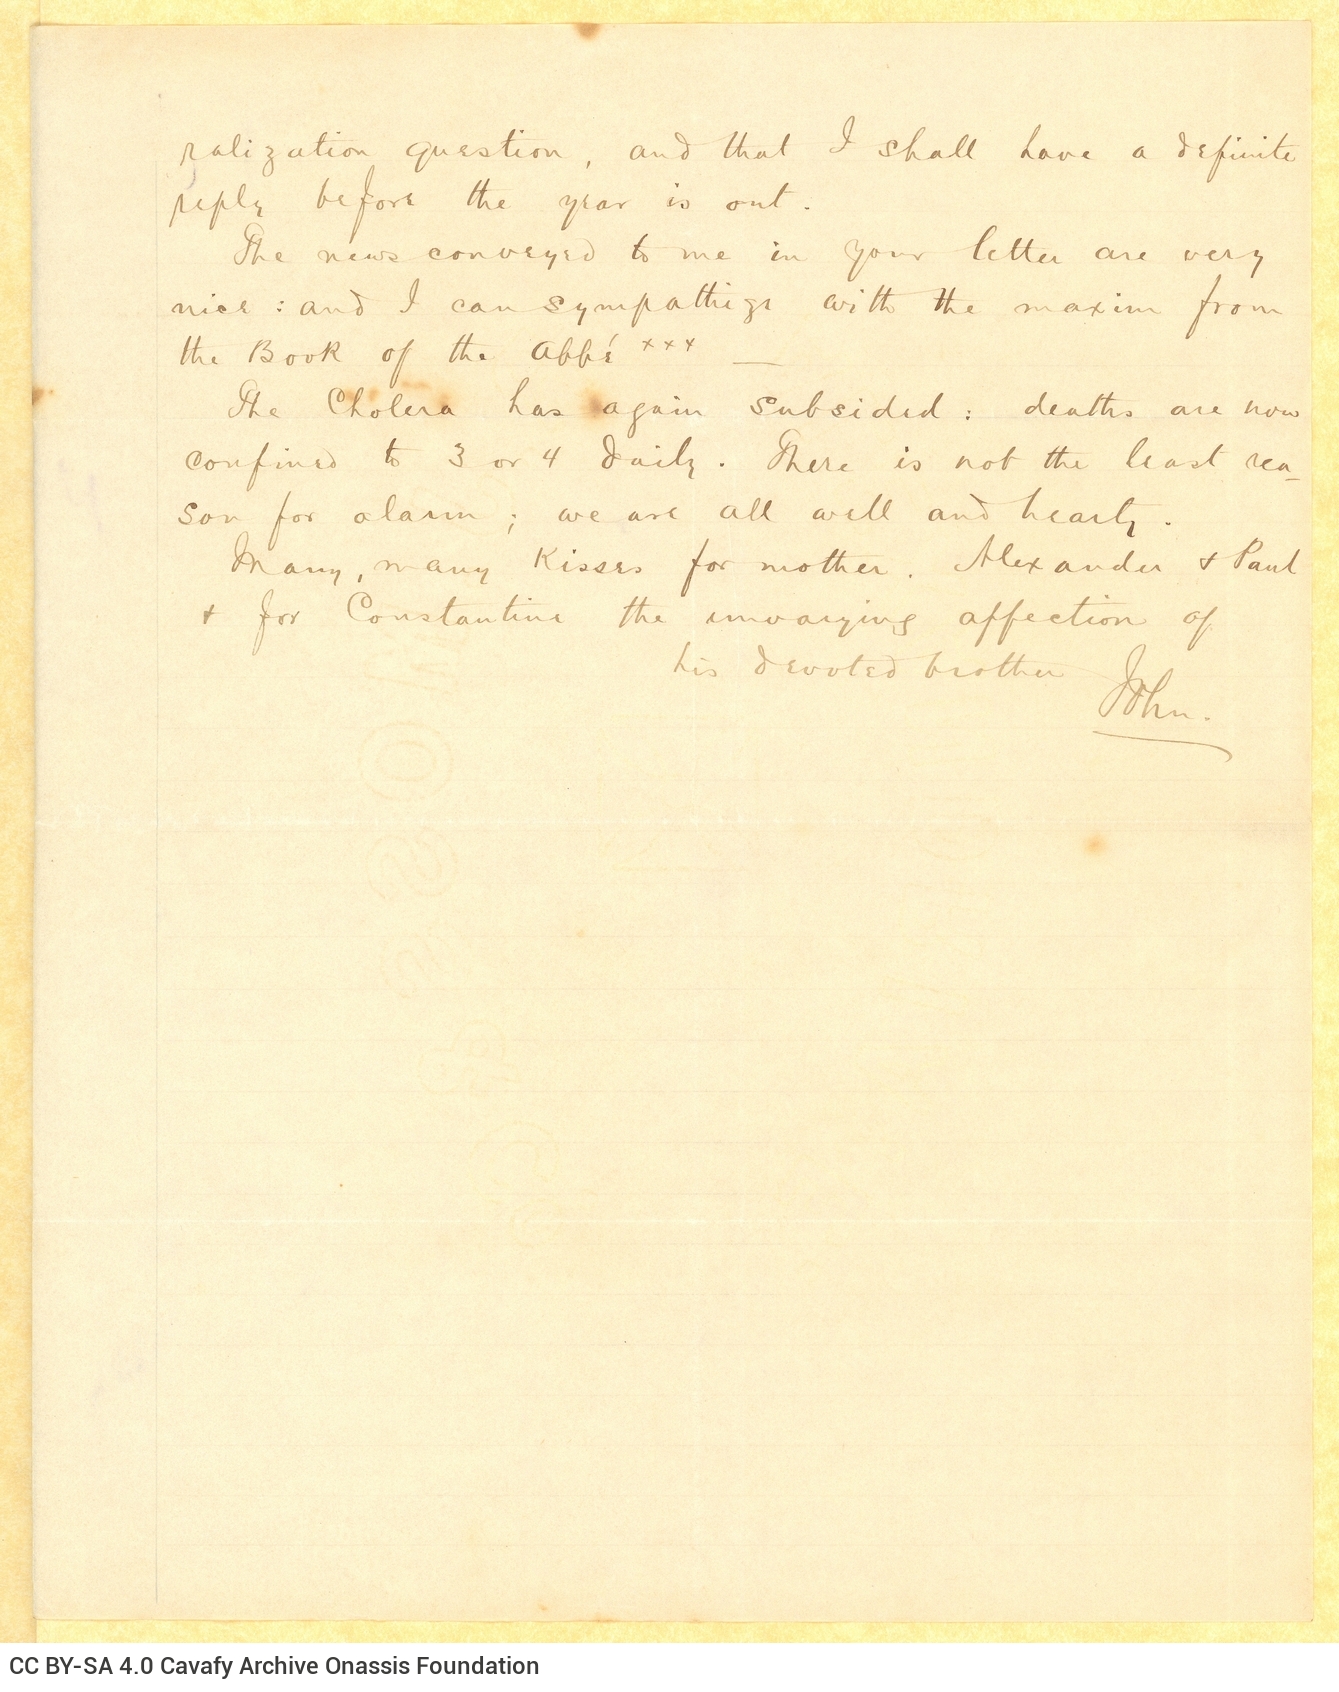 ralization question, and that I shall have a definite
reply before the year is out.
The news conveyed to me in your letter are very
nice: and I can sympathize with the maxim from
the Book of the Abbé xxx —
The Cholera has again subsided: deaths are now
confined to 3 or 4 daily. There is not the least rea-
son for alarm; we are all well and hearty.
Many, many Kisses for mother. Alexander & Paul
& for Constantine the unvarying affection of
his devoted brother
John.
CC BY-SA 4.0 Cavafy Archive Onassis Foundation